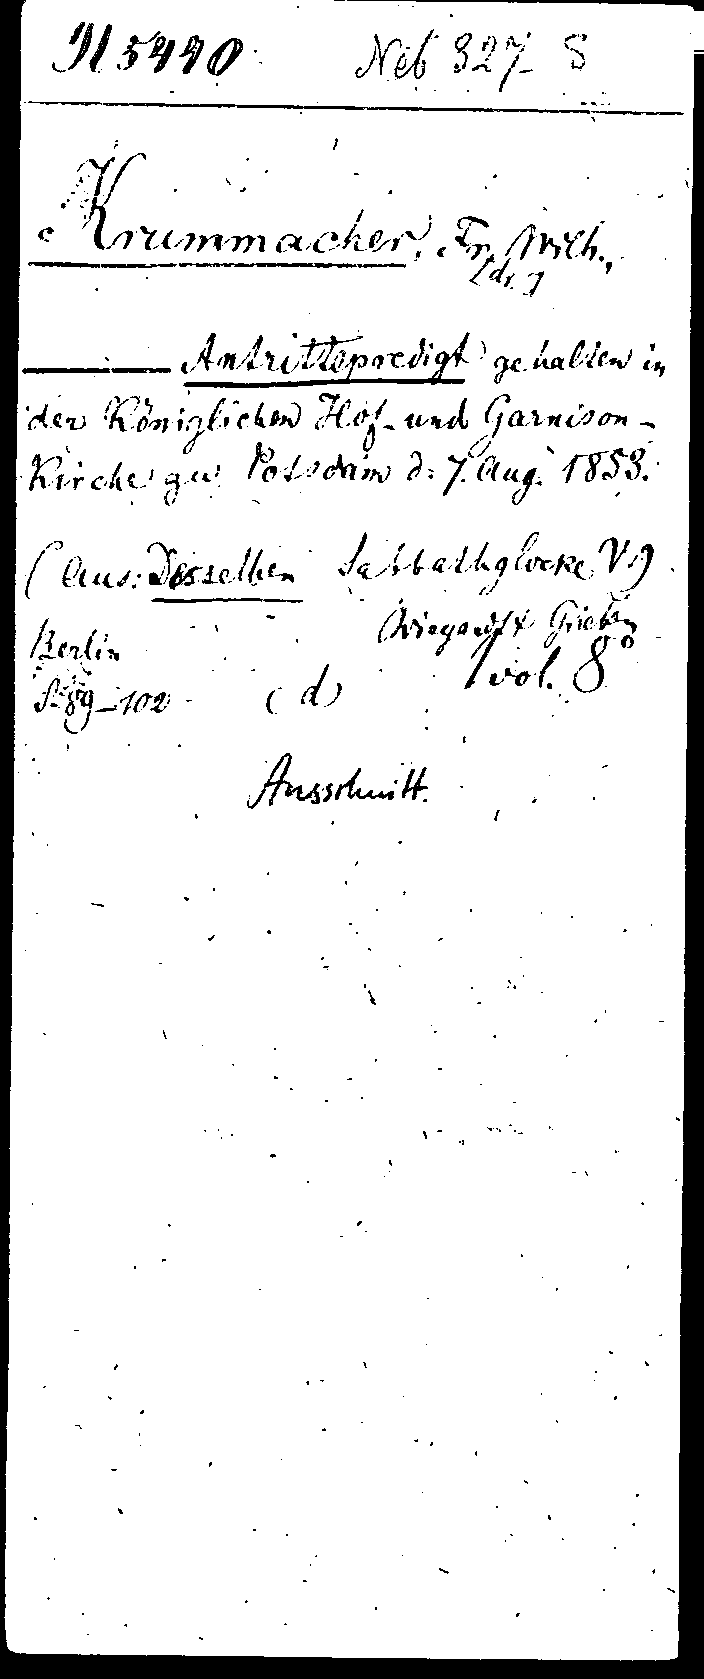 N 5440 Neb 327 S
Krummacher, Fr. Wilh.,
[dr.]
Antrittspredigt gehalten in
der Königlichen Hof- und Garnison-
Kirche zu Potsdam d. 7. Aug. 1853.
(Aus: Desselben Sabbathglocke V)
Berlin Wiegandt & Grieben
S. 89-102 (d) 1 vol. 8°
Ausschnitt.